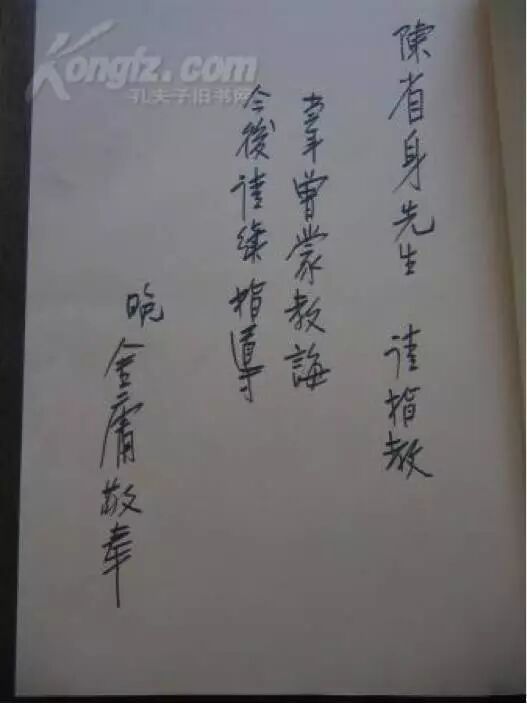 陳省身先生 请指教
当年曾蒙教誨
今後请继指導
晚 金庸敬奉
Kongfz.com
孔夫子旧书网